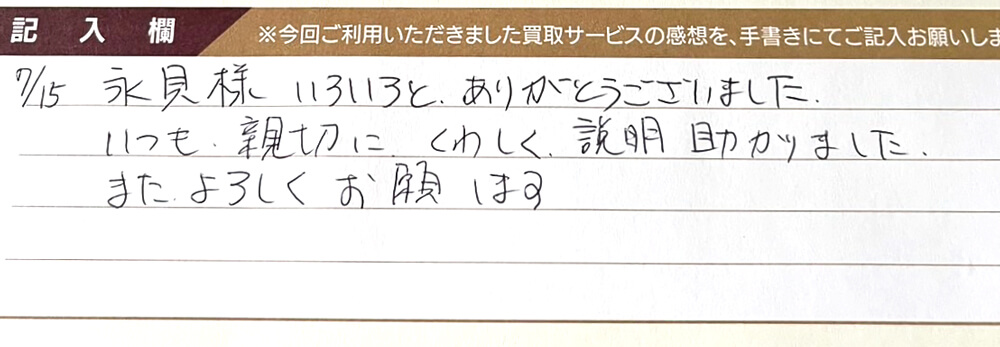 記入欄 ※今回ご利用いただきました買取サービスの感想を、手書きにてご記入お願いしま
7/15 永見様 いろいろと、ありがとうございました。
いつも、親切に、くわしく、説明 助カリました。
また、よろしく お願 します